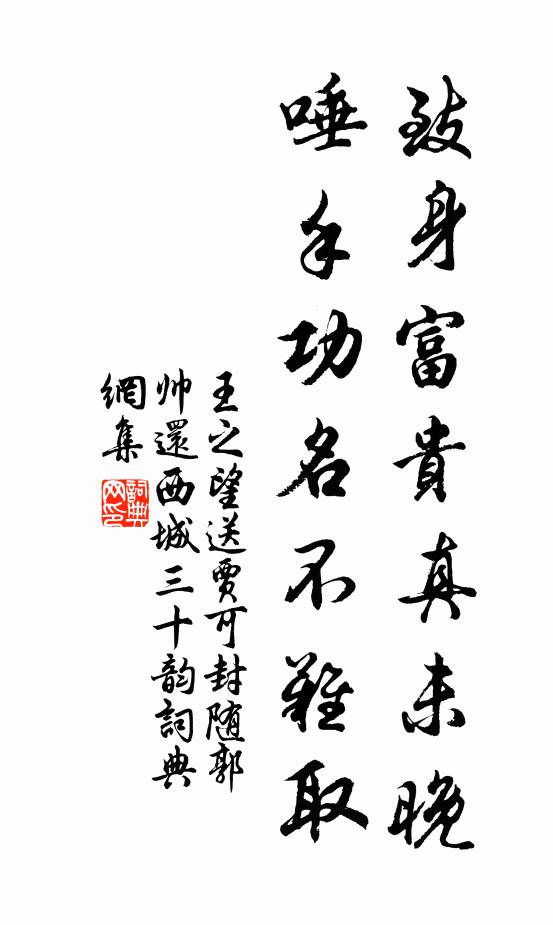 致身富貴真未晚
唾手功名不難取
王之望送賈可封随郭
帅還西城三十韵詞典
網集
詞典
网印